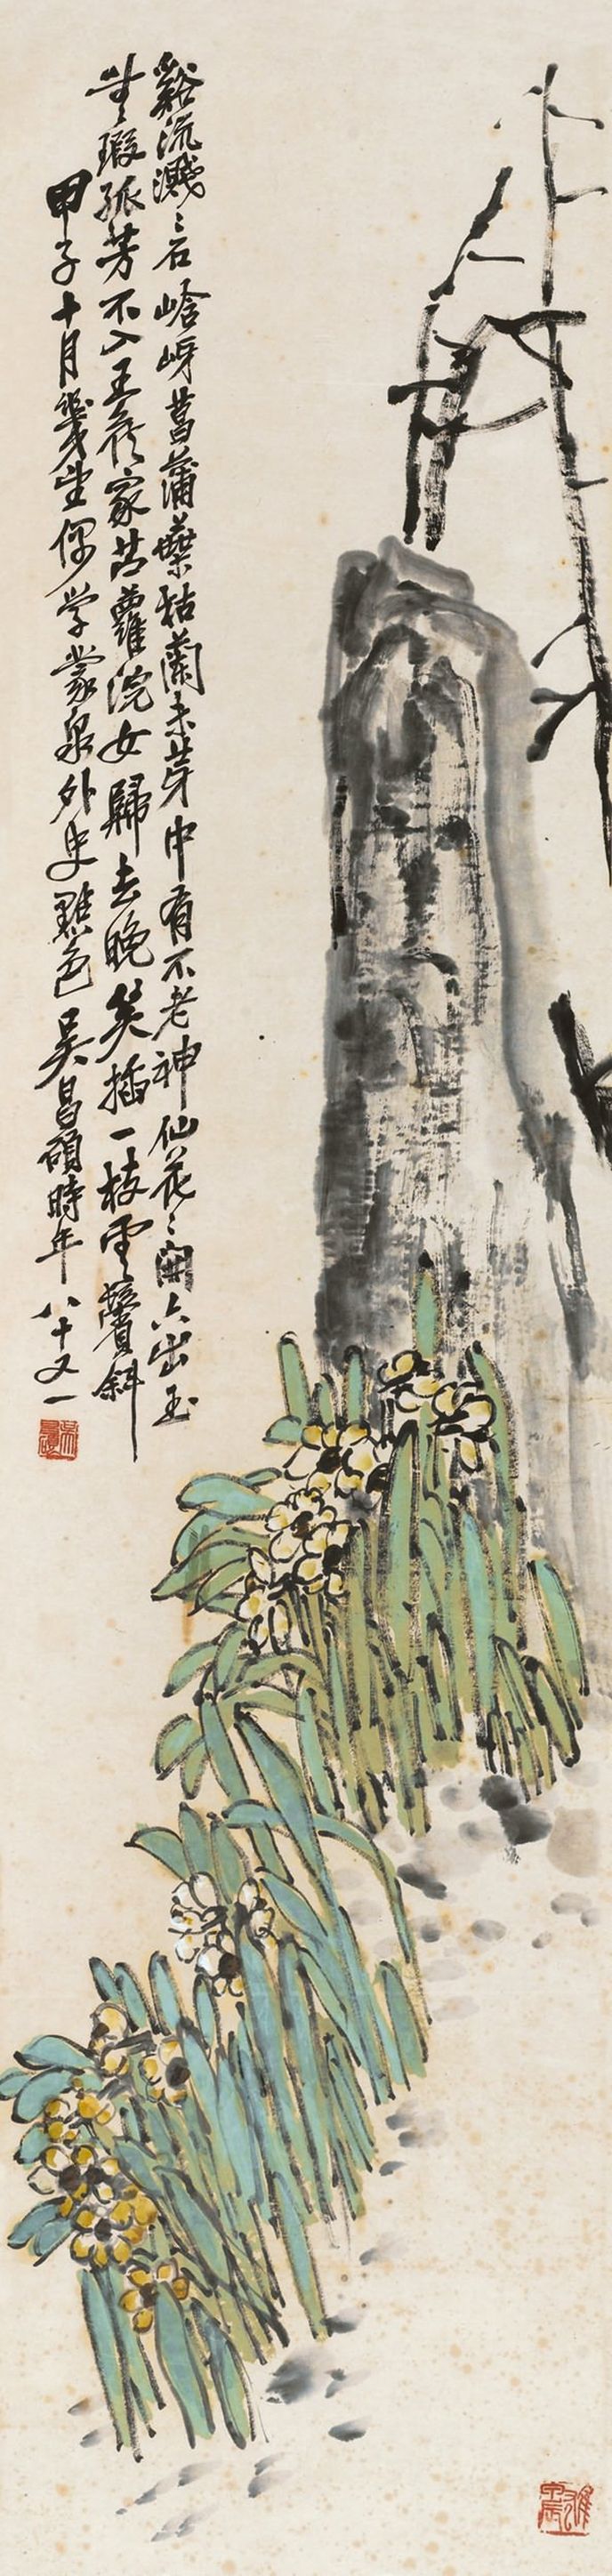 谿流濺〻石㟏岈菖蒲葉枯蘭未芽中有不老神仙花〻開六出玉
無瑕孤芳不入王侯家苧蘿浣女歸去晚笑插一枝雲鬢斜
甲子十月幾望偶學蒙泉外史點色吳昌碩時年八十又一